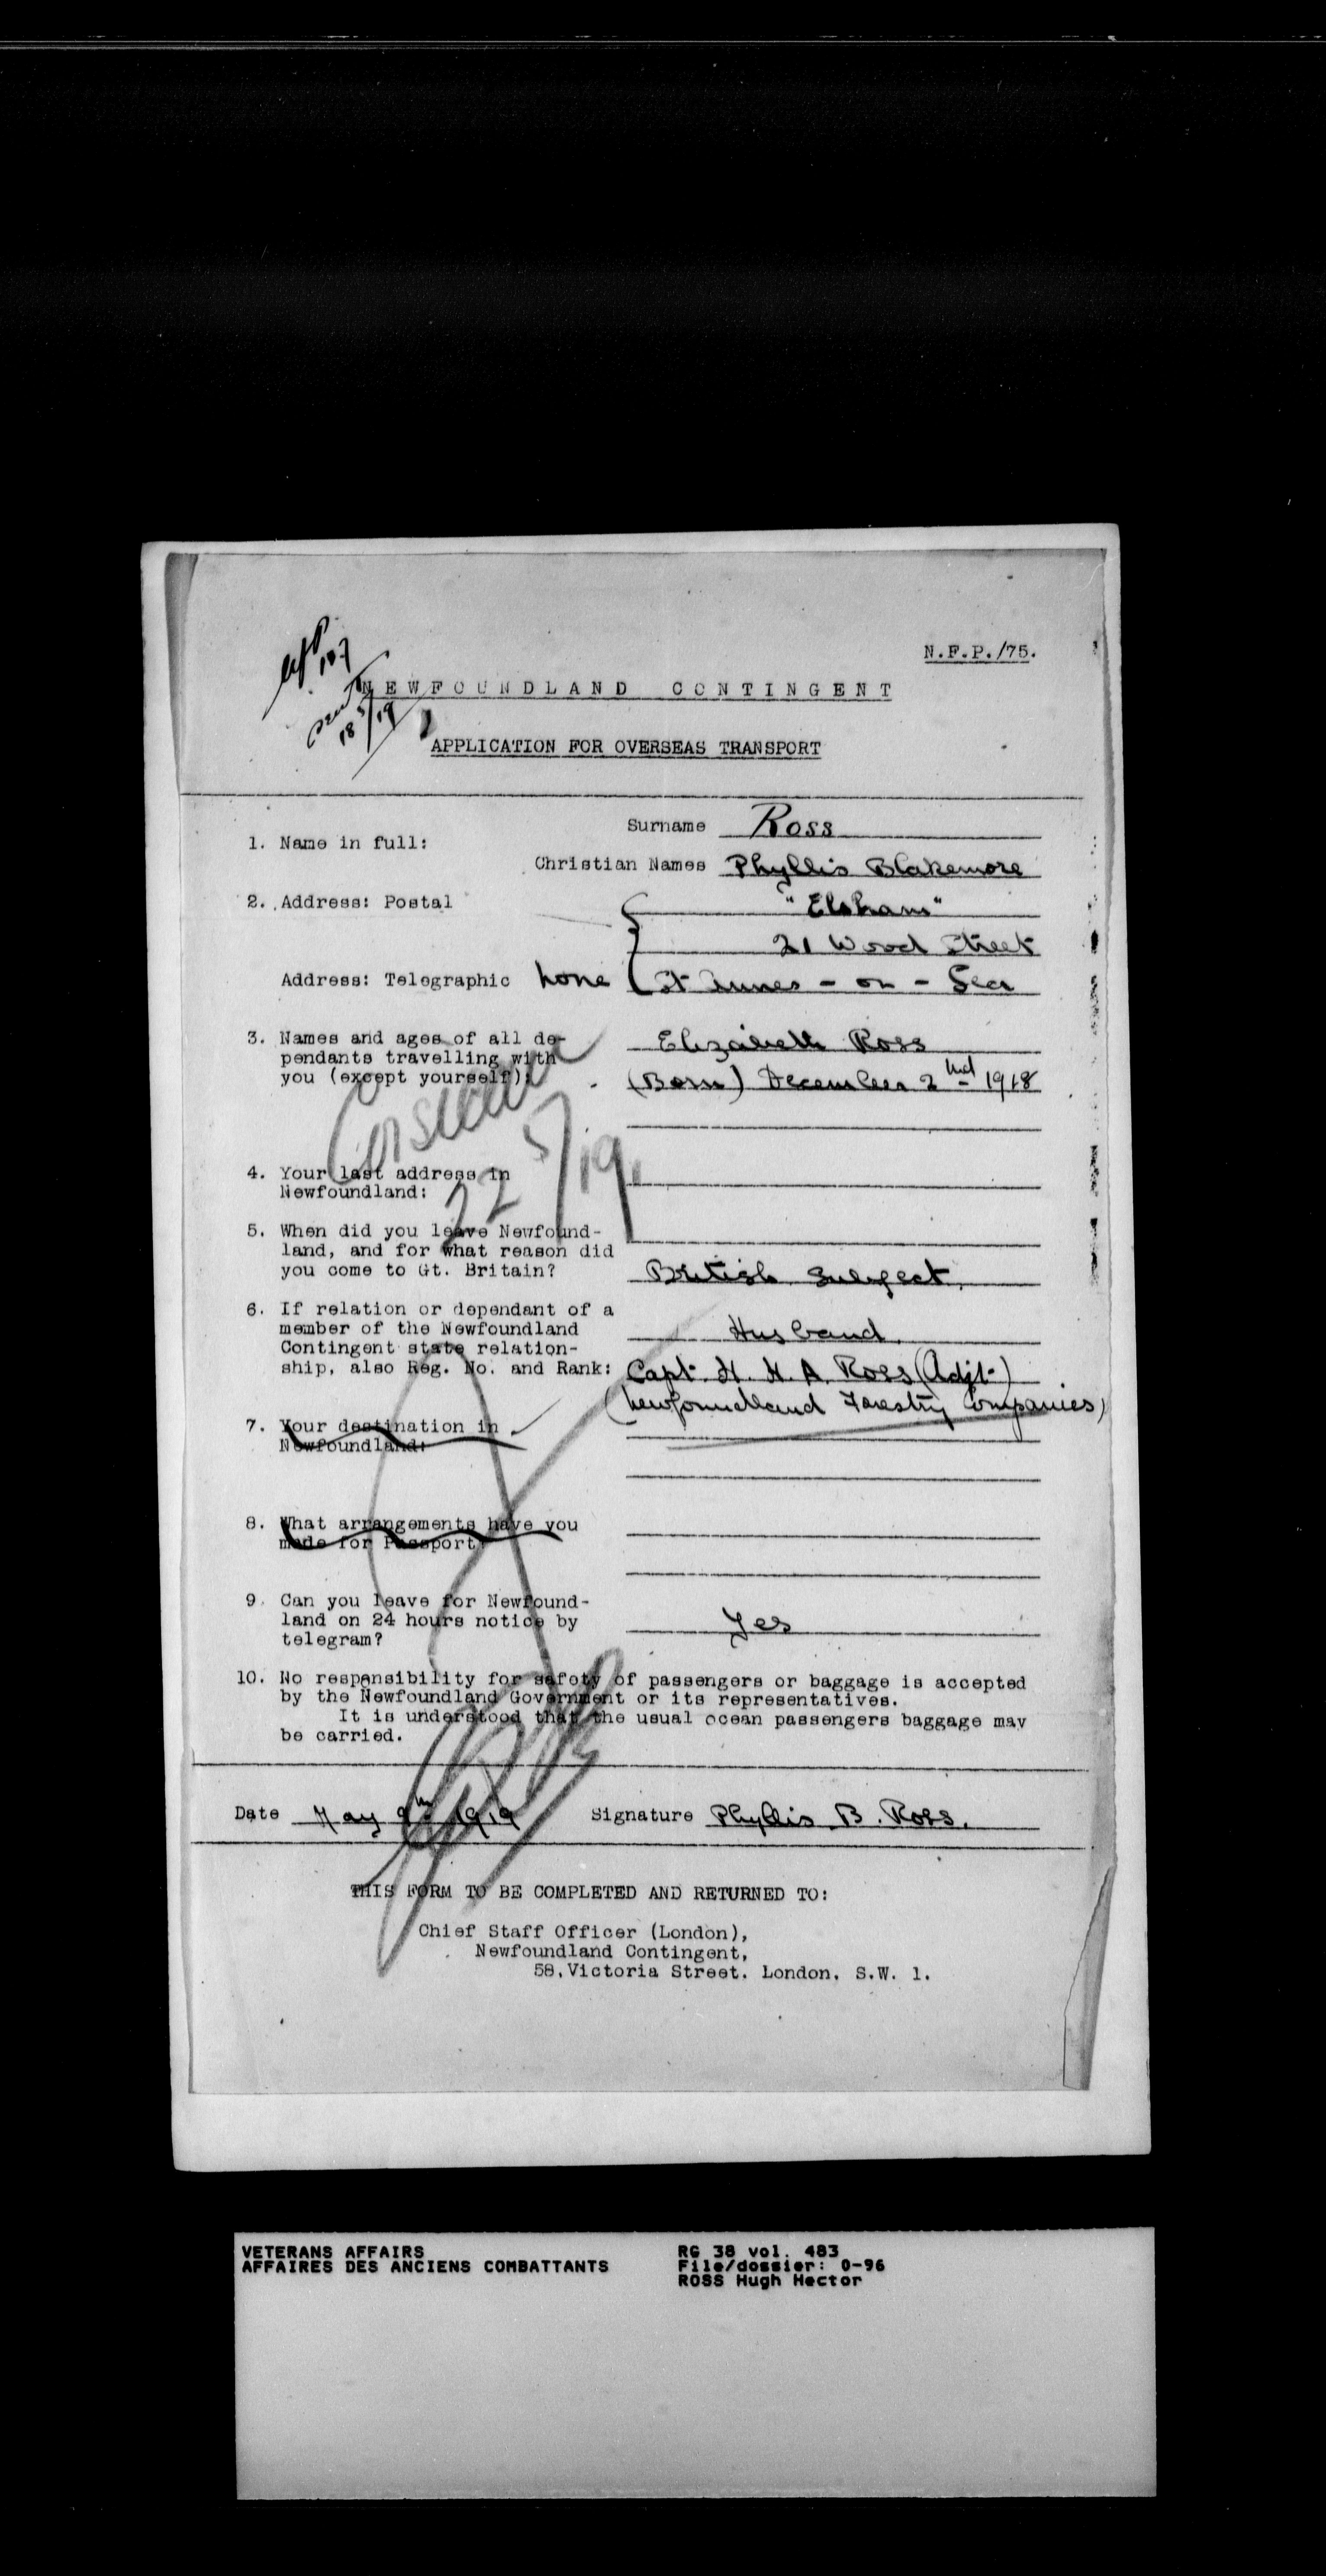 N.F.P./75.
NEWFOUNDLAND CONTINGENT
18/5/19
APPLICATION FOR OVERSEAS TRANSPORT
1. Name in full: Surname Ross
Christian Names Phyllis Blakemore
2. Address: Postal "Elsham"
21 Wood Street
Address: Telegraphic none St Annes - on - Sea
3. Names and ages of all de- Elizabeth Ross
pendants travelling with
you (except yourself): (Born) December 2nd 1918
22/5/19
4. Your last address in
Newfoundland:
5. When did you leave Newfound-
land, and for what reason did
you come to Gt. Britain? British Subject.
6. If relation or dependant of a
member of the Newfoundland Husband
Contingent state relation-
ship, also Reg. No. and Rank: Capt. H. H. A. Ross (Adjt.)
(Newfoundland Forestry Companies)
7. Your destination in
Newfoundland:
8. What arrangements have you
made for Passport
9. Can you leave for Newfound-
land on 24 hours notice by Yes
telegram?
10. No responsibility for safety of passengers or baggage is accepted
by the Newfoundland Government or its representatives.
It is understood that the usual ocean passengers baggage may
be carried.
Date May 9th 1919 Signature Phyllis B. Ross.
THIS FORM TO BE COMPLETED AND RETURNED TO:
Chief Staff Officer (London),
Newfoundland Contingent,
58, Victoria Street. London, S.W. 1.
VETERANS AFFAIRS RG 38 vol. 483
AFFAIRES DES ANCIENS COMBATTANTS File/dossier: 0-96
ROSS Hugh Hector